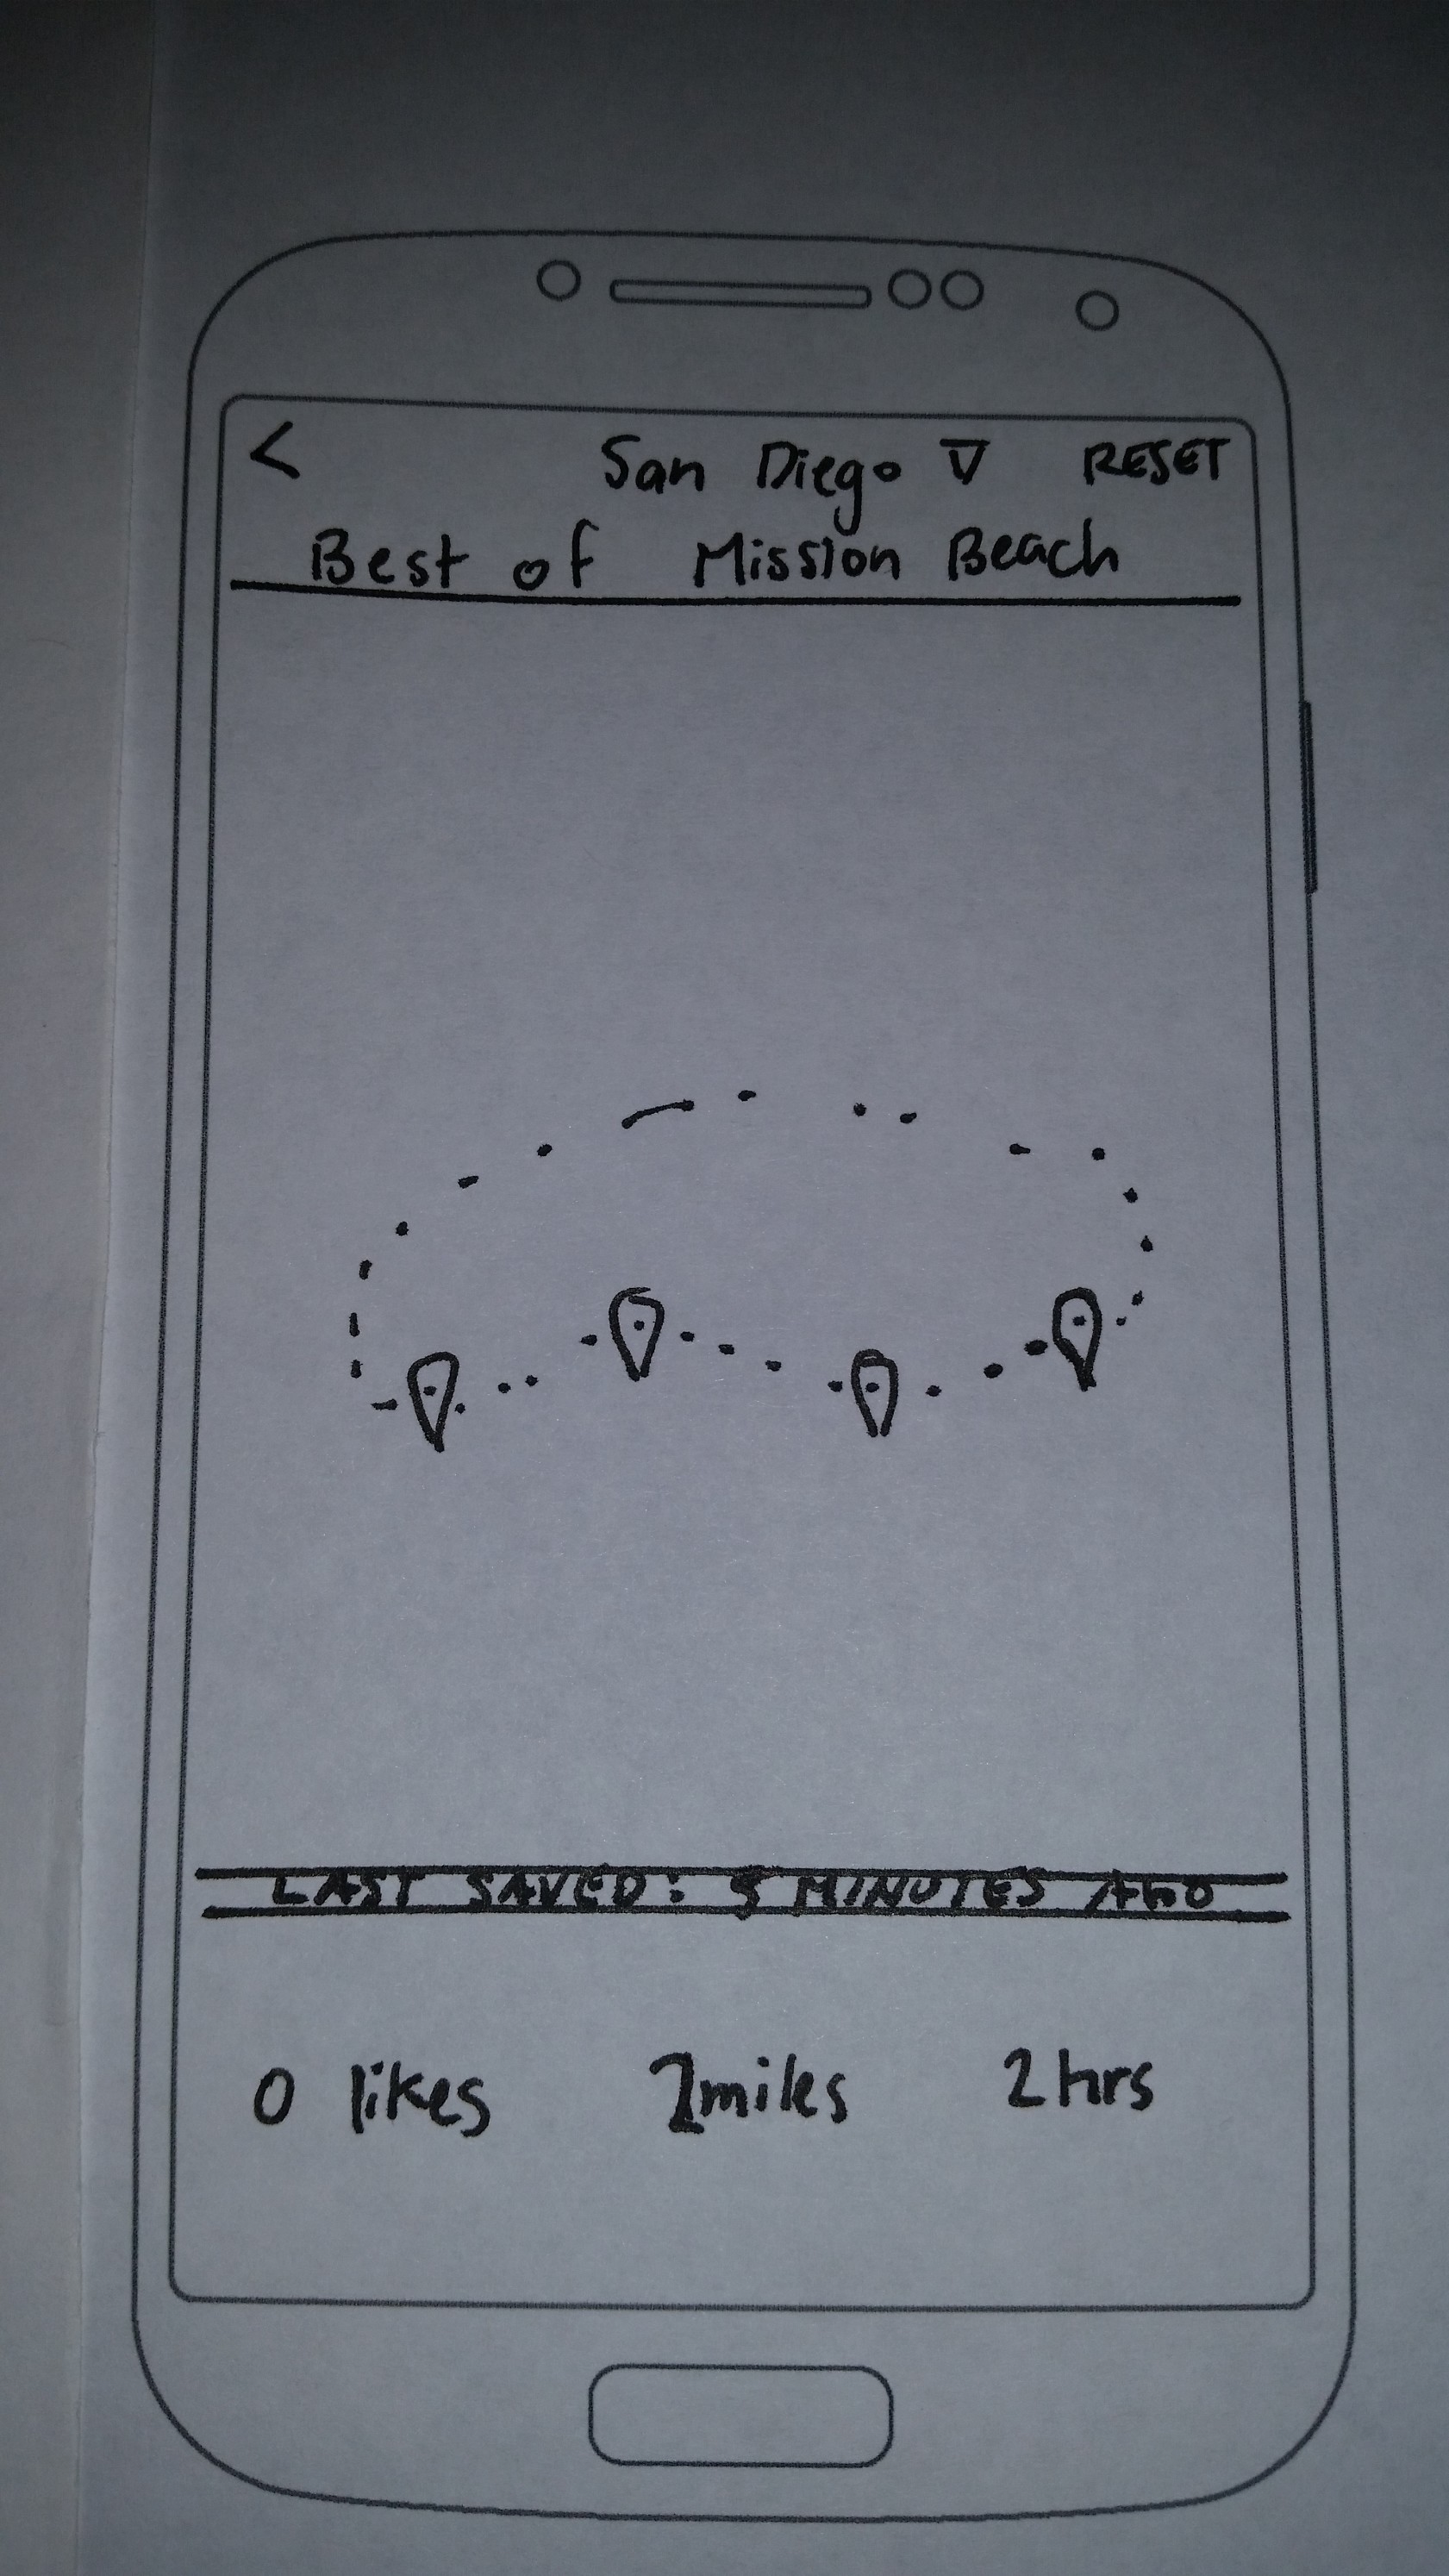 < San Diego ▽ RESET
Best of Mission Beach
LAST SAVED: 5 MINUTES AGO
0 likes miles 2 hrs